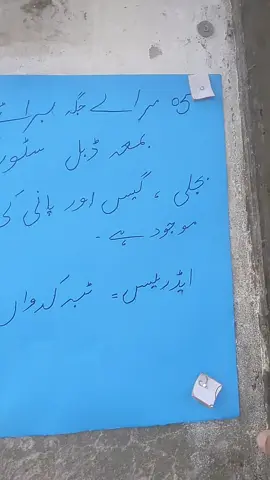 05 مرلے جگہ برائے
بمعہ ڈبل سٹور
بجلی ، گیس اور پانی کی
موجود ہے ۔
ایڈریس = ٹبہ کدواں